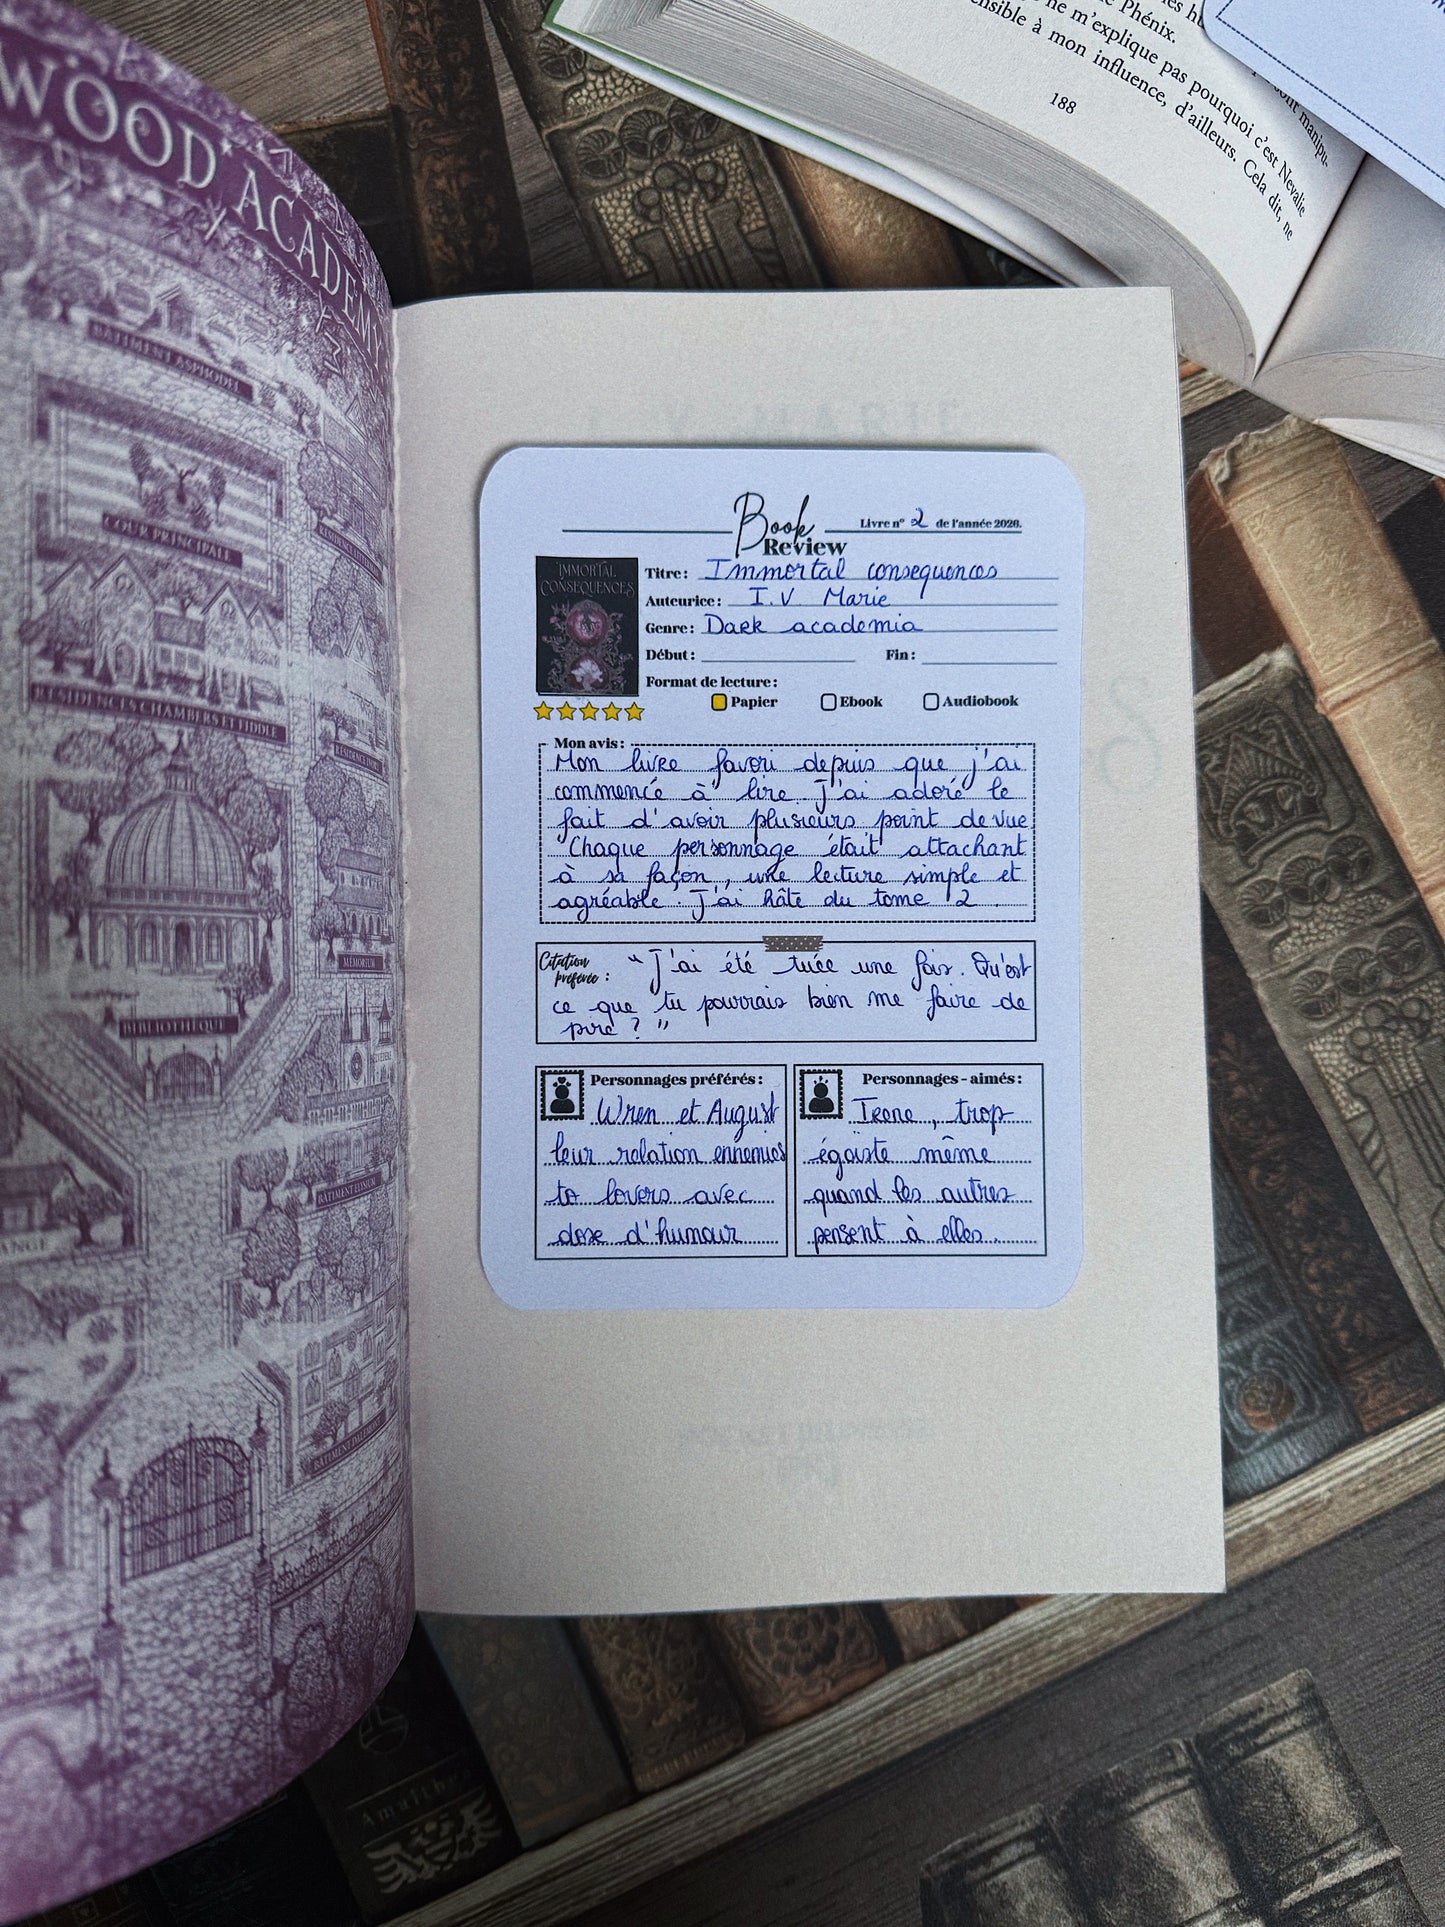 WOOD ACADEMY
BÂTIMENT ASPHODEL
COUR PRINCIPALE
RÉSIDENCES CHAMBERS ET FIDDLE
MÉMORIUM
BIBLIOTHÈQUE
BELVÉDÈRE
BÂTIMENT ELYSIUM
Phénix.
ne m'explique pas pourquoi c'est Nevalie
ensible à mon influence, d'ailleurs. Cela dit, ne
188
Book
Review
Livre n° 2 de l'année 2026.
IMMORTAL
CONSEQUENCES
Titre : Immortal consequences
Auteurice : I.V. Marie
Genre : Dark academia
Début :
Fin :
Format de lecture :
Papier
Ebook
Audiobook
Mon avis :
Mon livre favori depuis que j'ai
commencé à lire. J'ai adoré le
fait d'avoir plusieurs point de vue
Chaque personnage était attachant
à sa façon, une lecture simple et
agréable. J'ai hâte du tome 2.
Citation
préférée :
" J'ai été tuée une fois. Qu'est
ce que tu pourrais bien me faire de
pire ? "
Personnages préférés :
Wren et August
leur relation ennemies
to lovers avec
dose d'humour
Personnages - aimés :
Irene, trop
égoïste même
quand les autres
pensent à elles.
Amalthea